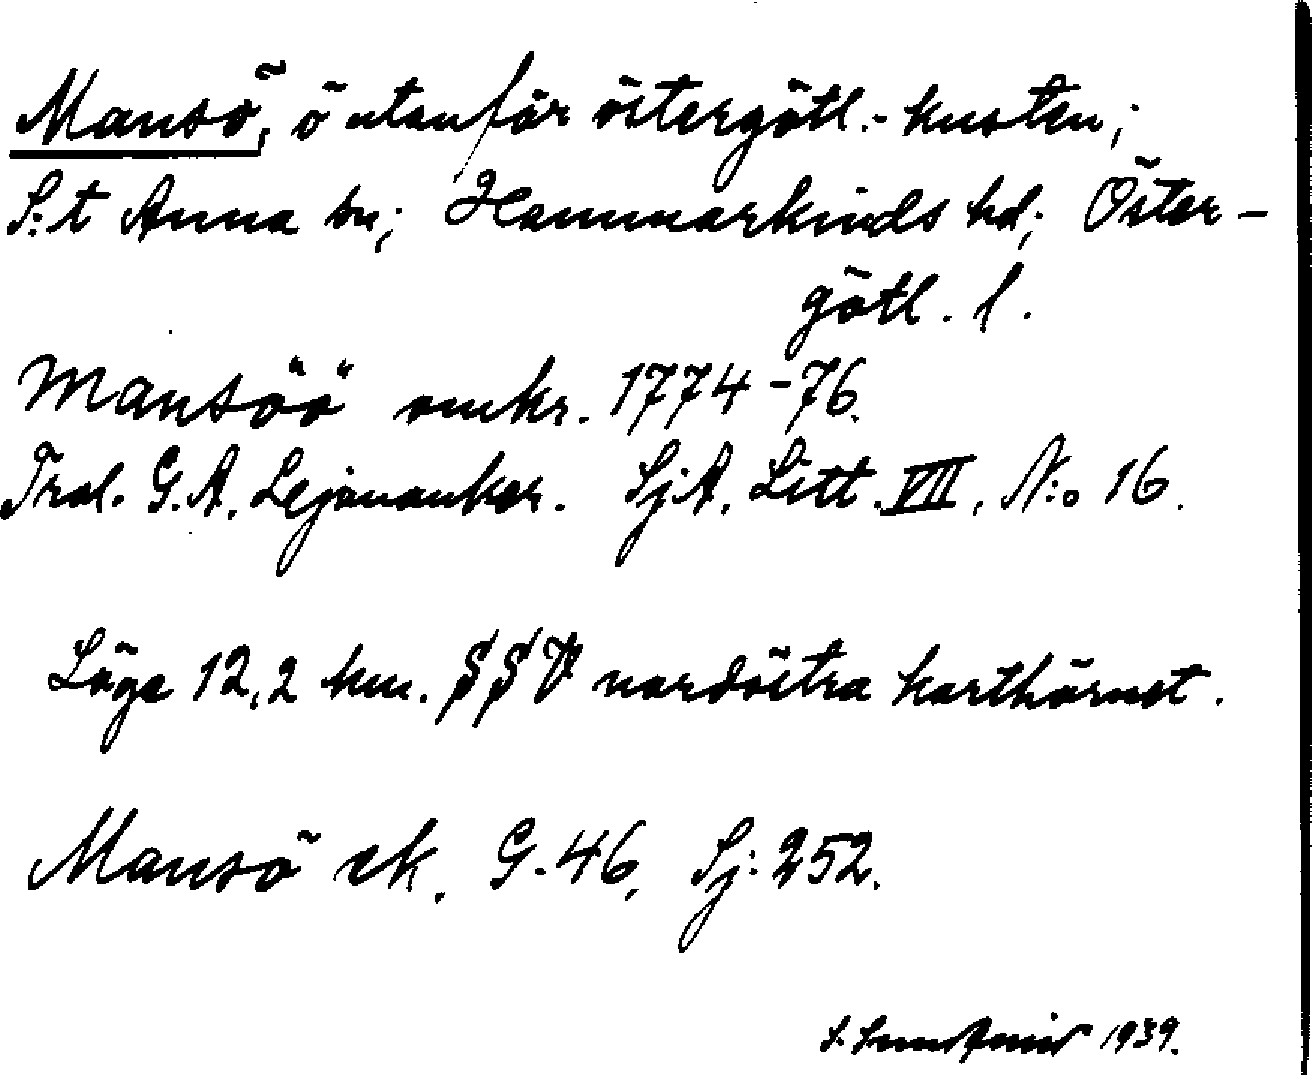 Mansö, ö utanför östergötl.-kusten;
S:t Anna sn; Hammarkinds hd; Öster-
götl. l.
Mansöö omkr. 1774-76.
Trol. G.A. Lejonanker. SjA. Litt. VIII, N:o 16.
Läge 12,2 km. SSV nordöstra karthörnet.
Mansö ek. G.46, Sj: 252.
S. 1939.